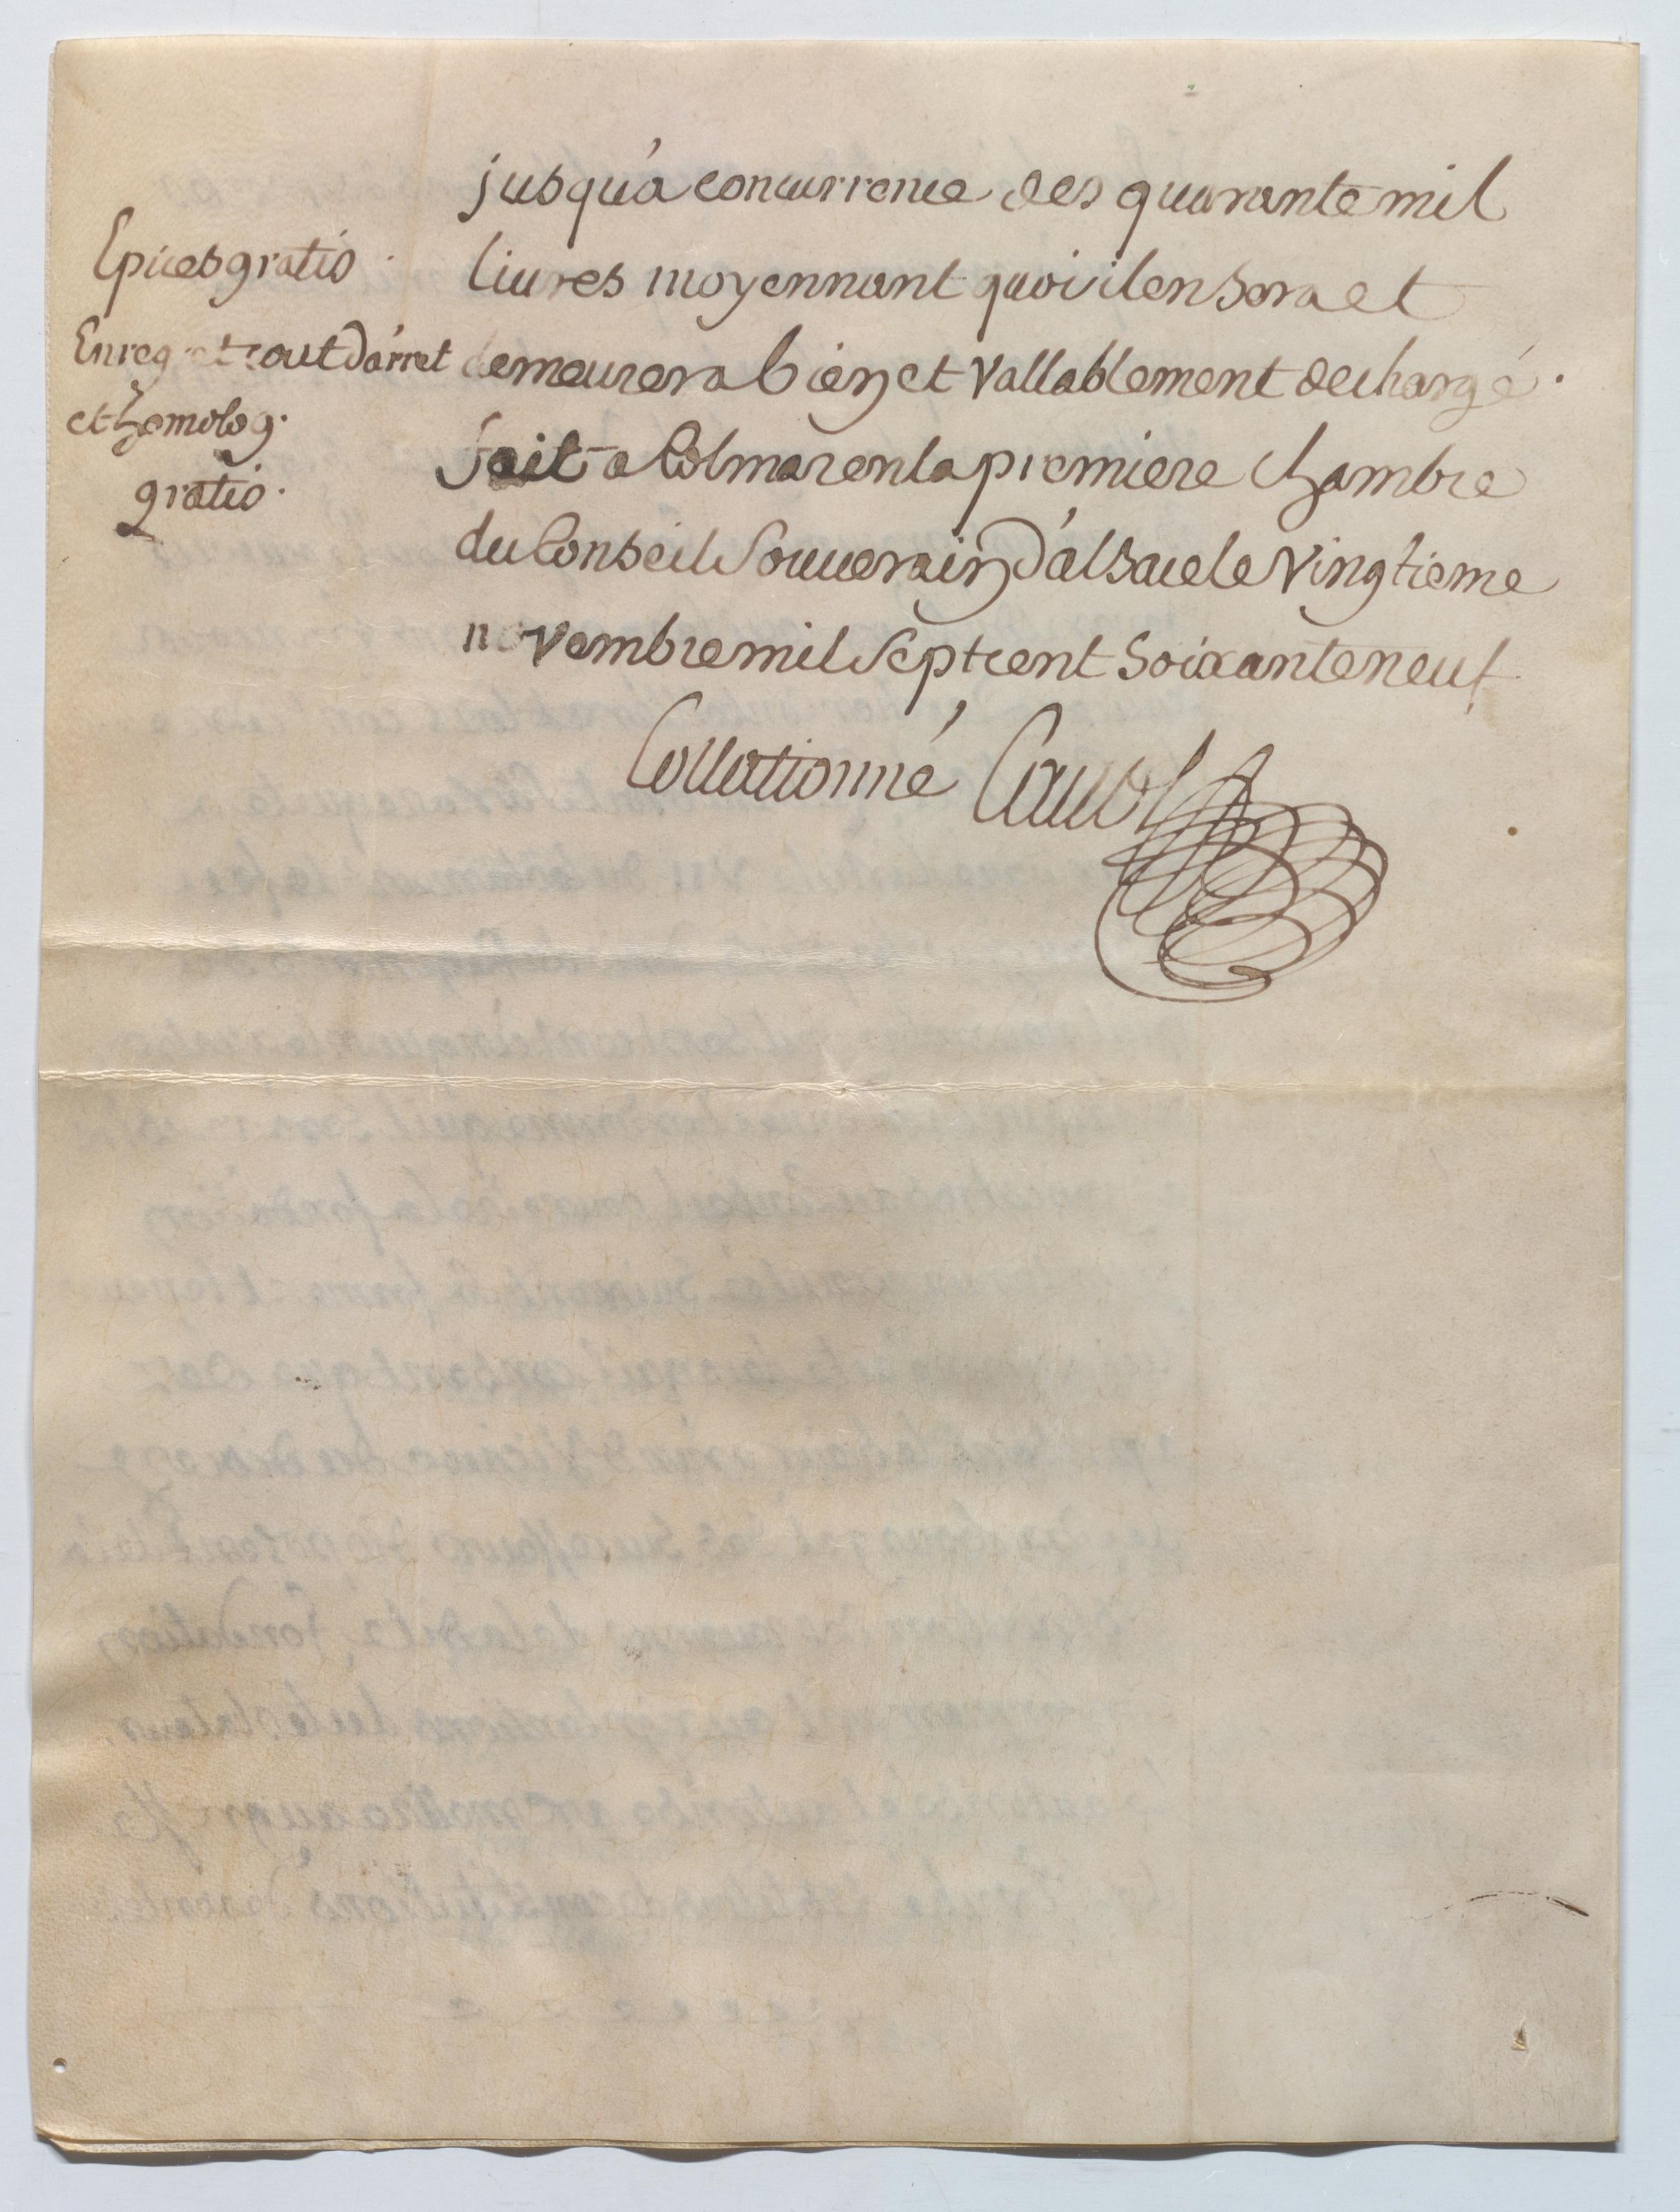 jusqu'a concurrence des quarante mil
livres moyennant quoi il en sera et
demeurera bien et vallablement dechargé.
fait a Colmar en la premiere chambre
du Conseil Souverain d'alsace le vingtieme
novembre mil sept cent soixante neuf
Collationné
Epices gratis.
Enreg. et cout d'arret
et homolog.
gratis.